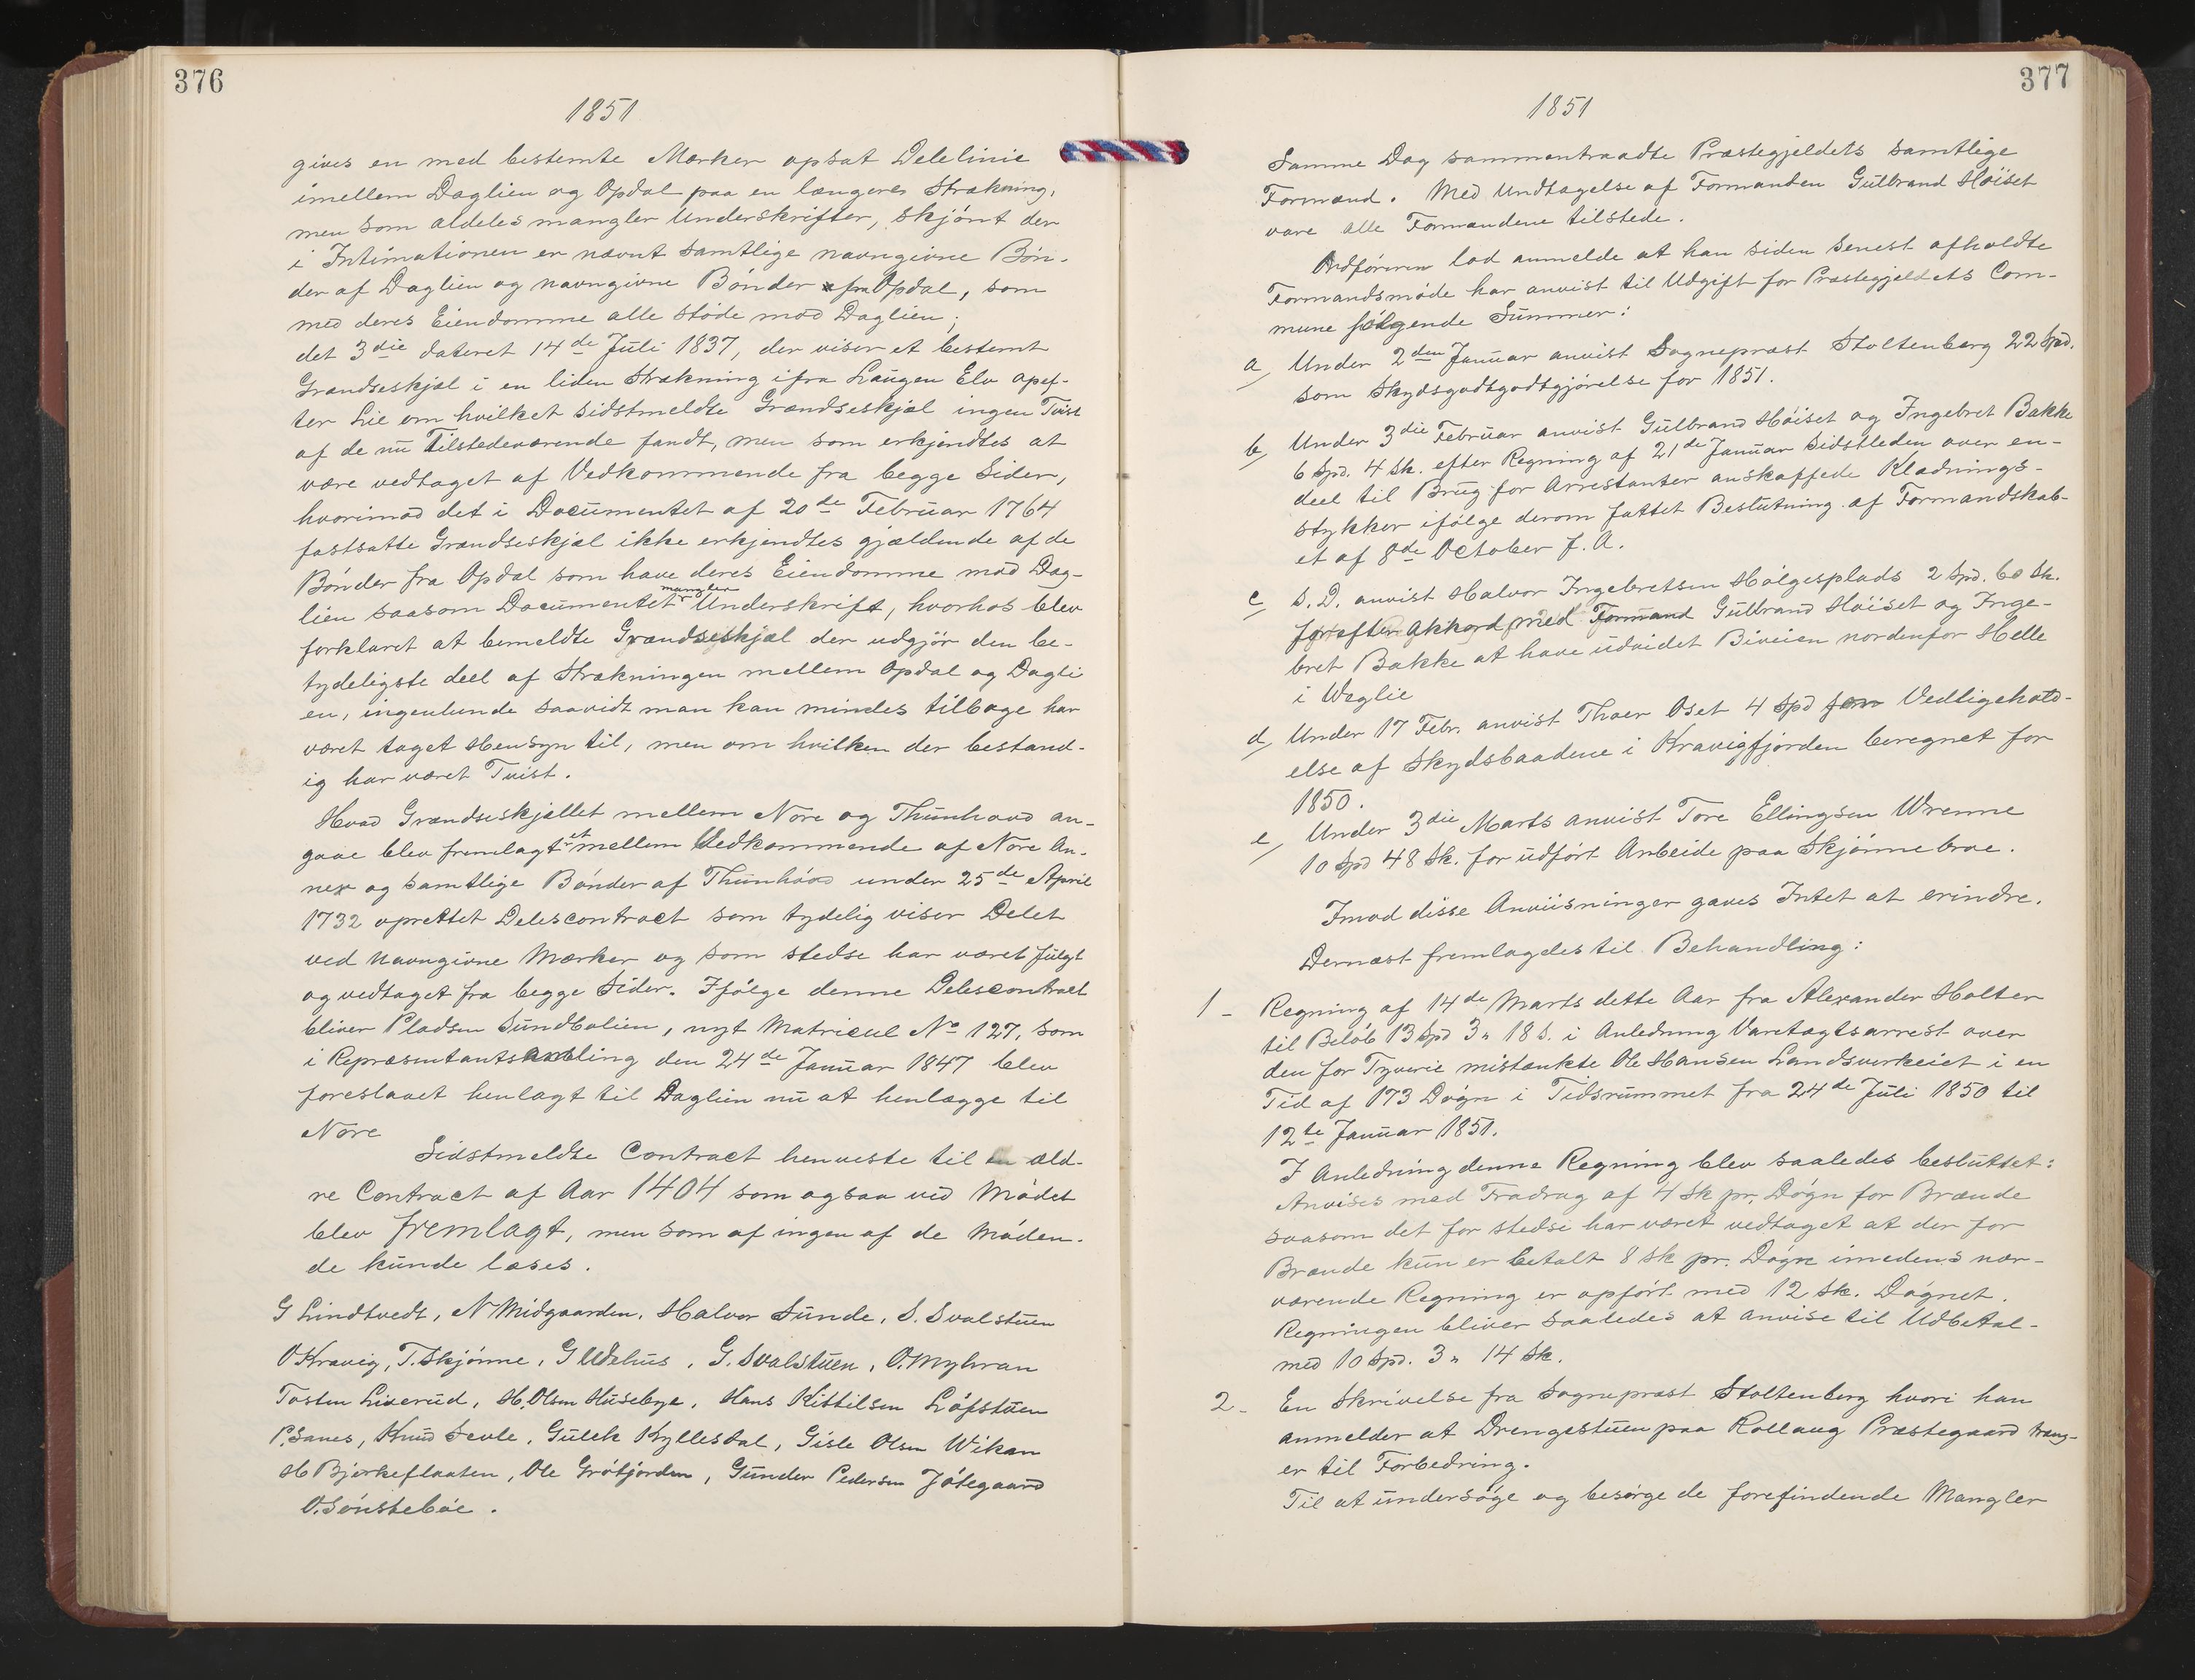 376
1851
gives en med bestemte Mærker opsat Delelinie
imellem Daglien og Opdal paa en længere Strækning,
men som aldeles mangler Underskrifter, skjønt der
i Intimationen er nævnt samtlige navngivne Bøn-
der af Daglien og navngivne Bønder fra Opdal, som
med deres Eiendomme alle støde mod Daglien;
det 3die dateret 14de Juli 1837, der viser et bestemt
Grændseskjæl i en liden Strækning ifra Laugen Elv opef-
ter Lie om hvilket sidstmeldte Grændseskjæl ingen Tvist
af de nu Tilstedeværende fandt, men som erkjendtes at
være vedtaget af Vedkommende fra begge Sider,
hvorimod det i Documentet af 20de Februar 1764
fastsatte Grændseskjæl ikke erkjendtes gjældende af de
Bønder fra Opdal som have deres Eiendomme mod Dag-
lien saasom Documentet mangler Underskrift, hvorhos blev
forklaret at bemeldte Grændseskjæl der udgjør den be-
tydeligste deel af Strækningen mellem Opdal og Dagli
en, ingenlunde saavidt man kan mindes tilbage har
været taget Hensyn til, men om hvilken der bestand-
ig har været Tvist.
Hvad Grændseskjellet mellem Nore og Thunhovd an-
gaae blev fremlagt et mellem Vedkommende af Nore An-
nex og samtlige Bønder af Thunhovd under 25de April
1732 oprettet Delescontract som tydelig viser Delet
ved navngivne Mærker og som stedse har været fulgt
og vedtaget fra begge Sider. Ifølge denne Delescontract
bliver Pladsen Sundbølien, nyt Matricul No 127, som
i Repræsentantsamling den 24de Januar 1847 blev
foreslaaet henlagt til Daglien nu at henlægge til
Nore
Sidstmeldte Contract henviste til en æld-
re Contract af Aar 1404 som ogsaa ved Mødet
blev fremlagt, men som af ingen af de Møden-
de kunde læses.
G Lindtvedt, N Midgaarden, Halvor Sunde, S. Svalstuen
O Kravig, T. Skjønne, G Udehus, G. Svalstuen, O. Myhran
Tosten Liverud, H. Olsen Husebye, Hans Kittilsen Løfstuen
P. Sanes, Knud Sevle, Gulek Kyllesdal, Gisle Olsen Wikan
H Bjerkeflaaten, Ole Grøtjorden, Gunder Pedersen Jøtegaard
O. Sønstebøe.
377
1851
Samme Dag sammentraadte Præstegjeldets samtlige
Formænd. Med Undtagelse af Formanden Gulbrand Høiset
vare alle Formændene tilstede.
Ordføreren lod anmelde at han siden senest afholdte
Formandsmøde har anvist til Udgift for Præstegjeldets Com-
mune følgende Summer:
a/ Under 2den Januar anvist Sognepræst Stoltenberg 22 Spd.
som Skydsgodtgodtgjørelse for 1851.
b/ Under 3die Februar anvist Gulbrand Høiset og Ingebret Bakke
6 Spd. 4 Sk. efter Regning af 21de Januar sidstleden over en-
deel til Brug for Arrestanter anskaffede Klædnings-
stykker ifølge derom fattet Beslutning af Formandskab-
et af 8de October f. A.
c/ S. D. anvist Halvor Ingebretsen Hølgesplads 2 Spd. 60 Sk.
for efter Akkord med Formand Gulbrand Høiset og Inge-
bret Bakke at have udvidet Biveien nordenfor Helle
i Weglie
d/ Under 17 Febr. anvist Thoer Oset 4 Spd for Vedligehold-
else af Skydsbaadene i Kravigfjorden beregnet for
1850.
e/ Under 3die Marts anvist Tore Ellingsen Wrenne
10 Spd 48 Sk. for udført Arbeide paa Skjønne broe.
Imod disse Anviisninger gaves Intet at erindre.
Dernæst fremlagdes til Behandling:
1 - Regning af 14de Marts dette Aar fra Alexander Holter
til Beløb 13 Spd 3 " 18 S. i Anledning Varetægtsarrest over
den for Tyverie mistænkte Ole Hansen Landsverkeiet i en
Tid af 173 Døgn i Tidsrummet fra 24de Juli 1850 til
12te Januar 1851.
I Anledning denne Regning blev saaledes besluttet:
Anvises med Fradrag af 4 Sk pr. Døgn for Brænde
saasom det for stedse har været vedtaget at der for
Brænde kun er betalt 8 Sk pr. Døgn imedens nær-
værende Regning er opført med 12 Sk. Døgnet.
Regningen bliver saaledes at anvise til Udbetal-
med 10 Spd. 3 " 14 Sk.
2 - En Skrivelse fra Sognepræst Stoltenberg hvori han
anmelder at Drengestuen paa Rollaug Præstegaard træng-
er til Forbedring.
Til at undersøge og besørge de forefindende Mangler